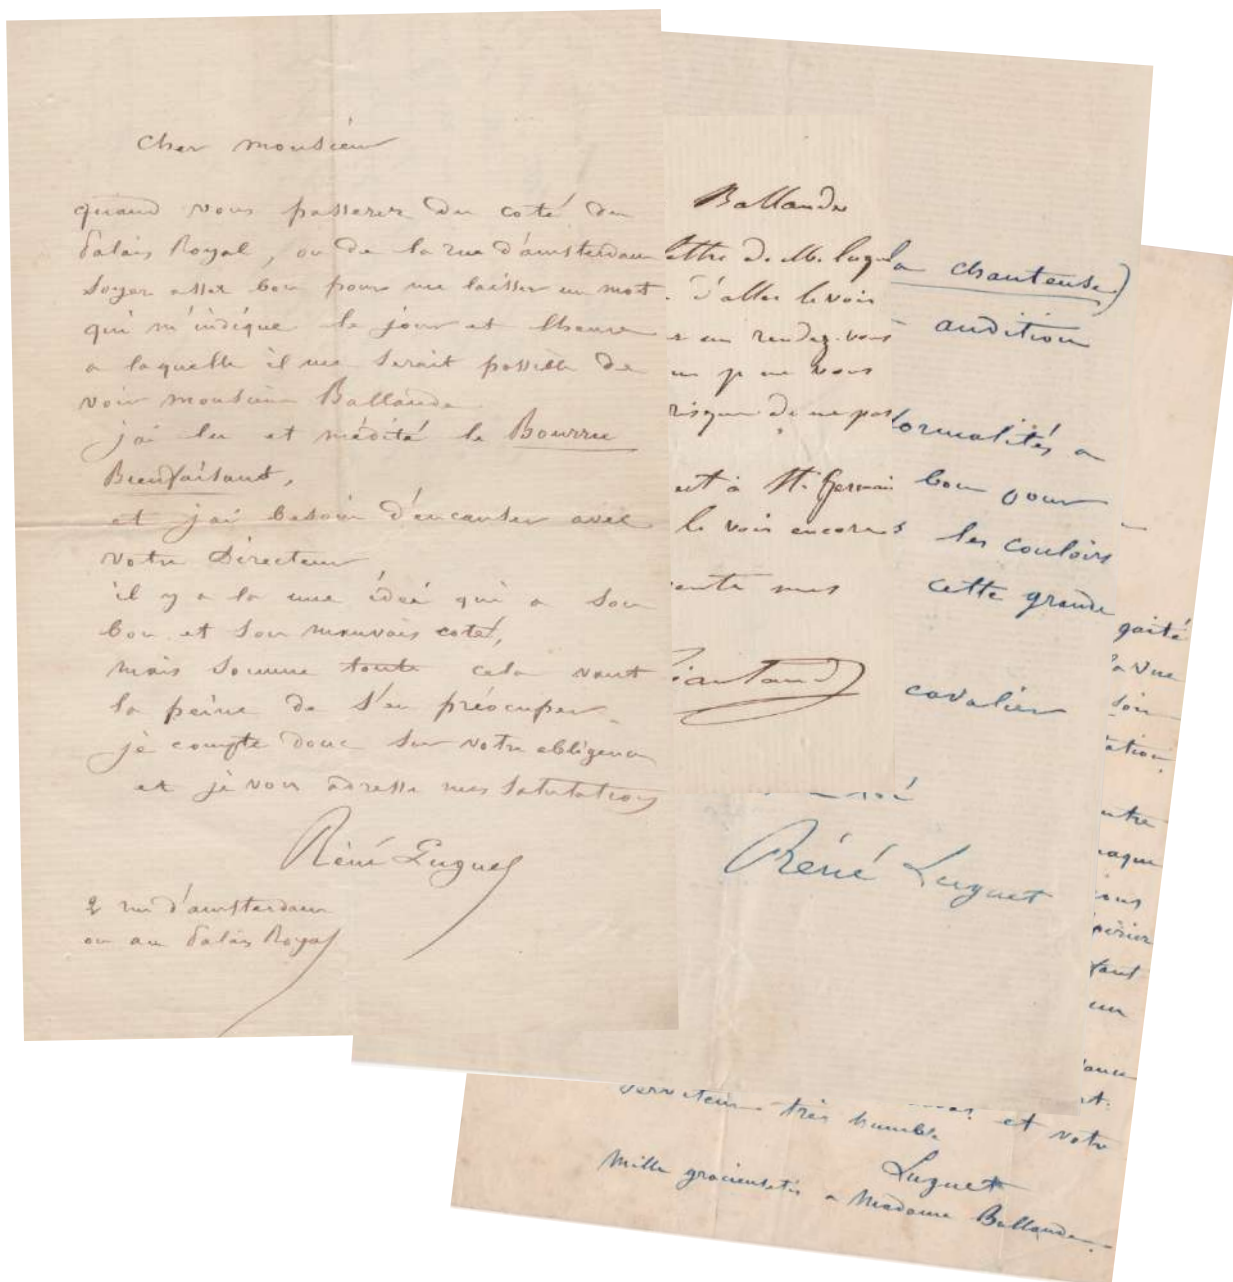 Cher monsieur
quand vous passerez du coté du
Palais Royal, ou de la rue d'amsterdam
soyez assez bon pour me laisser un mot
qui m'indique le jour et lheure
a laquelle il me serait possible de
voir monsieur Ballande
jai lu et médité le Bourru
Bienfaisant,
et jai besoin d'en causer avec
votre Directeur
il y a la une idée qui a son
bon et son mauvais coté,
mais somme toute cela vaut
la peine de s'en préocuper
je compte donc sur votre obligence
et je vous adresse mes salutations
Réné Luguet
2 rue d'amsterdam
ou au Palais Royal
Ballande
ettre de M. Lugu
d'aller le voir
un rendez-vous
je ne vous
risque de ne pas
est à St. Germain
le voir encore
mes
la chanteuse)
audition
formalités a
bon pour
les couloirs
cette grande
cavalier
Réné Luguet
gaité
la vue
soir
tation
ntre
haque
ions
périer
faut
un
ance
et votre
serviteur très humble
Luguet
Mille gracieusetés a Madame Ballande.